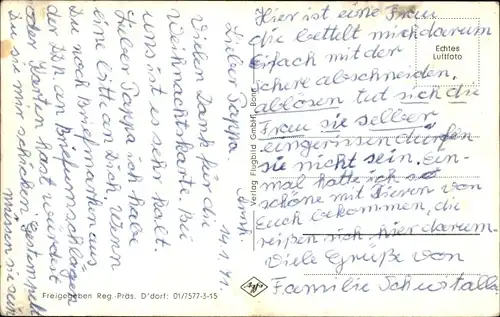 14.1.71.
Lieber Pappa.
Vielen Dank für die
Weihnachtskarte. Bei
uns ist es sehr kalt.
Lieber Pappa ich habe
eine bitte an Dich. Wenn
Du noch Briefmarken aus
der DDR an Briefumschlägen
oder Karten hast würdest
Du sie mir schicken. Gestempelt
müssen sie sein
Hier ist eine Frau
die bettelt mich darum
Einfach mit der
Schere abschneiden,
ablösen tut sich die
Frau sie selber
eingerissen dürfen
sie nicht sein. Ein-
mal hatte ich so
schöne mit Tieren von
Euch bekommen, die
reißen sich hier darum.
Viele Grüße von
Familie
Echtes
Luftfoto
Verlag Flugbild GmbH., Bonn
Freigegeben Reg.-Präs. D'dorf: 01/7577-3-15
Agfa